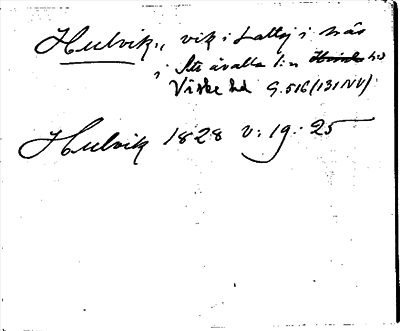 Hulvik, vik i Lattsj i nås
i Str ävalla l:n hd
Viske hd G. 516 (131 NV)
Hulvik 1828 v. 19. 25